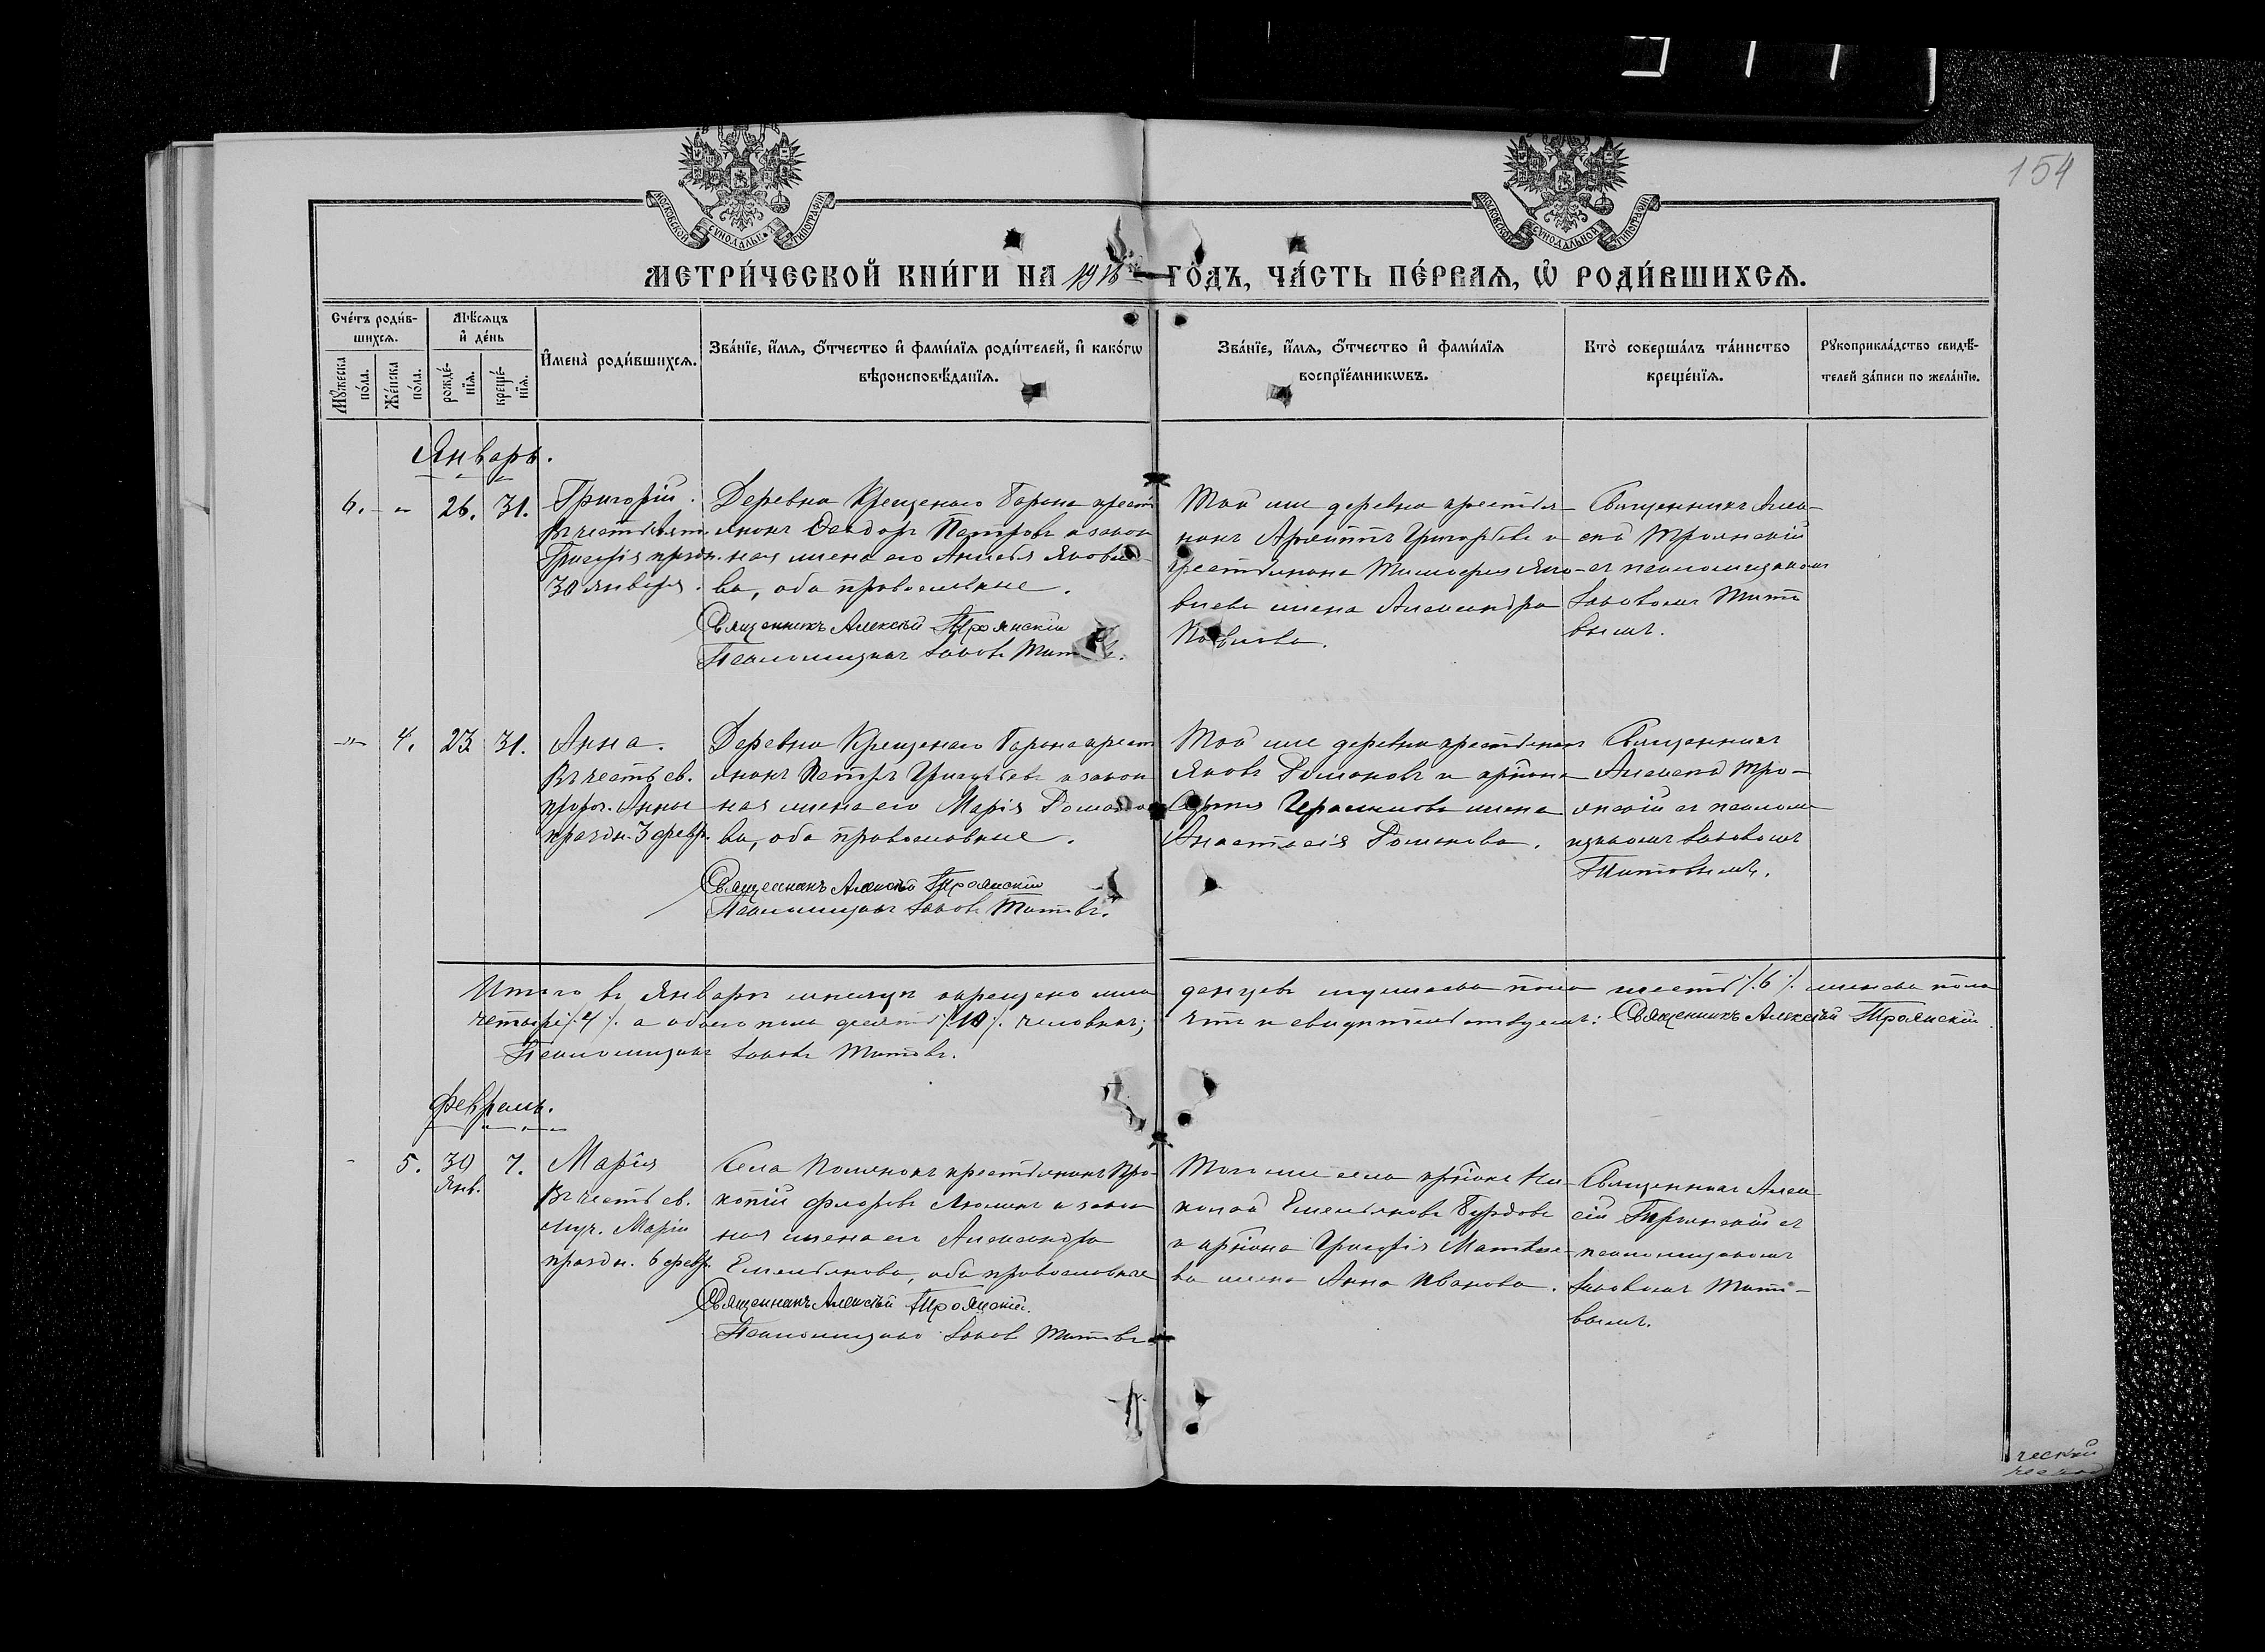 154
МОСКОВСКОЙ СУНОДАЛЬНОЙ ТИПОГРАФІИ
МОСКОВСКОЙ СУНОДАЛЬНОЙ ТИПОГРАФІИ
МЕТРИ́ЧЕСКОЙ КНИ́ГИ НА 1916 ГО́ДЪ, ЧА́СТЬ ПЕ́РВАѦ, Ѿ РОДИ́ВШИХСѦ.
Сче́тъ роди́в-
шихсѧ.
Мѣ́сѧцъ
и҆ де́нь
Мꙋ́жеска по́ла.
Же́нска по́ла.
рожде́-
нїѧ.
креще́-
нїѧ.
И҆мена̀ роди́вшихсѧ.
Зва́нїе, и҆́мѧ, ѻ҆́тчество и҆ фами́лїѧ роди́телей, и҆ како́гѡ
вѣроисповѣ́данїѧ.
Зва́нїе, и҆́мѧ, ѻ҆́тчество и҆ фами́лїѧ
воспрїе́мникѡвъ.
Кто̀ соверша́лъ та́инство
креще́нїѧ.
Рꙋкоприкла́дство свидѣ́-
телей за́писи по жела́нїю.
Январь.
6. - 26. 31.
Григорій.
Въ честь свят.
Григорія праздн.
30 января.
Деревни Крещенаго Барана крест
янинъ Ѳеодоръ Петровъ и закон
ная жена его Яковле
ва, оба православные.
Священникъ Алексѣй Троянскій
Псаломщикъ Іаковъ Титовъ.
Той же деревни крестья-
нинъ Григорьевъ и
крестьянина Тимофея Яко-
влева жена Александра
Священникъ Алек-
сѣй Троянскій
съ псаломщикомъ
Іаковомъ Тито
вымъ.
-"- 4. 23 31.
Анна.
Въ честь св.
прор. Анны
праздн. 3 февр.
Деревни Крещенаго Барана крест
янинъ Петръ Григорьевъ и закон
ная жена его Марія Романо
ва, оба православные.
Священникъ Алексѣй Троянскій
Псаломщикъ Іаковъ Титовъ.
Той же деревни крестьянинъ
Яковъ Романовъ и крестьянина
Герасимова жена
Анастасія Романова.
Священникъ
Алексѣй Тро-
янскій съ псалом
щикомъ Іаковомъ
Титовымъ.
Итого въ Январѣ мѣсяцѣ окрещено мла
денцевъ мужеска пола шесть /.6./ женска пола
четыре /.4./. а обоего пола десять /.10./. человѣкъ;
что и свидѣтельствуемъ: Священникъ Алексѣй Троянскій
Псаломщикъ Іаковъ Титовъ.
Февраль.
- 5. 30 7.
Янв.
Марія
Въ честь св.
муч. Маріи
праздн. 6 февр.
Села Полянокъ крестьянинъ Про-
копій Флоровъ и закон
ная жена его Александра
Емельянова, оба православные
Священникъ Алексѣй Троянскій.
Псаломщикъ Іаковъ Титовъ
Того же села крестьянинъ Ни-
колай Емельяновъ Бурдовъ
и крестьянина Григорія Матвѣе-
ва жена Анна Иванова.
Священникъ Алек-
сѣй Троянскій съ
псаломщикомъ
Іаковомъ Тито-
вымъ.